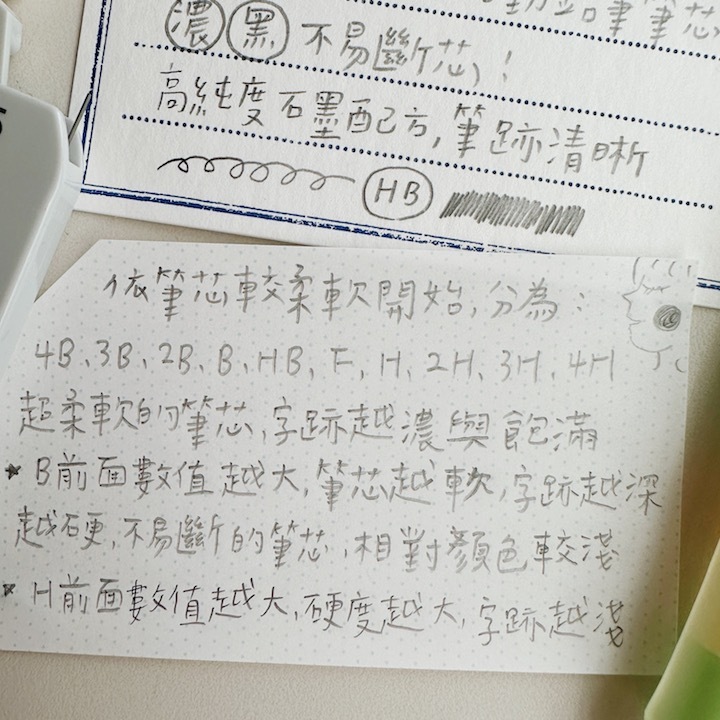 筆筆芯
濃黑不易斷芯!
高純度石墨配方,筆跡清晰
HB
依筆芯較柔軟開始,分為:
4B、3B、2B、B、HB、F、H、2H、3H、4H
超柔軟的筆芯,字跡越濃與飽滿
★ B前面數值越大,筆芯越軟,字跡越深
越硬,不易斷的筆芯,相對顏色較淺
★ H前面數值越大,硬度越大,字跡越淺